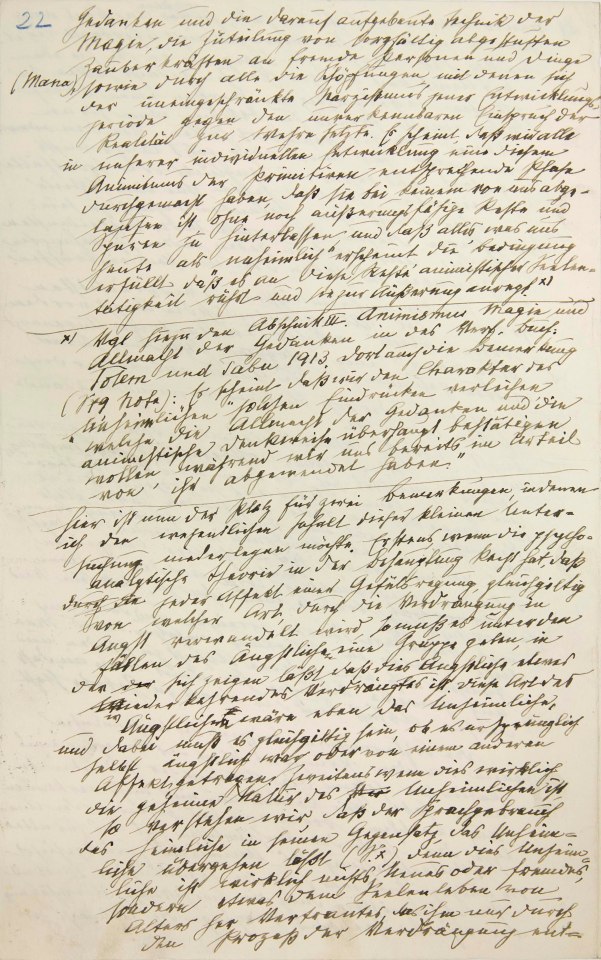 22
Gedanken und die darauf aufgebaute Technik der
Magie, die Zuteilung von sorgfältig abgestuften
Zauberkräften an fremde Personen und Dinge
(Mana), sowie durch alle die Schöpfungen, mit denen sich
der uneingeschränkte Narzissmus jener Entwicklungs-
periode gegen den unverkennbaren Einspruch der
Realität zur Wehre setzte. Es scheint, daß wir alle
in unserer individuellen Entwicklung eine diesem
Animismus der Primitiven entsprechende Phase
durchgemacht haben, daß sie bei keinem von uns abge-
laufen ist ohne noch äußerungsfähige Reste und
Spuren zu hinterlassen und daß alles was uns
heute als „unheimlich" erscheint die Bedingung
erfüllt daß es an diese Reste animistischer Seelen-
tätigkeit rührt und sie zur Äußerung anregt. x)
x) Vgl hiezu den Abschnitt III. Animismus Magie und
Allmacht der Gedanken in des Verf. Buch:
Totem und Tabu 1913. Dort auch die Bemerkung
(S 79 Note): Es scheint daß wir den Charakter des
„Unheimlichen" solchen Eindrücken verleihen
welche die Allmacht der Gedanken und die
animistische Denkweise überhaupt bestätigen
wollen während wir uns bereits im Urteil
von ihr abgewendet haben."
Hier ist nun der Platz für zwei Bemerkungen, in denen
ich den wesentlichen Inhalt dieser kleinen Unter-
suchung niederlegen möchte. Erstens wenn die psycho-
analytische Theorie in der Behauptung Recht hat, daß
jeder Affekt einer Gefühlsregung, gleichgiltig
von welcher Art durch die Verdrängung in
Angst verwandelt wird, so muß es unter den
Fällen des Ängstlichen eine Gruppe geben, in
der sich zeigen läßt daß dies Ängstliche etwas
wiederkehrendes Verdrängtes ist. Diese Art des
Ängstlichen wäre eben das Unheimliche,
und dabei muß es gleichgiltig sein, ob es ursprünglich
selbst ängstlich war oder von einem anderen
Affekt getragen. Zweitens wenn dies wirklich
die geheime Natur des Unheimlichen ist
so verstehen wir daß der Sprachgebrauch
das Heimliche in seinen Gegensatz, das Unheim-
liche übergehen läßt (S. x) denn dies Unheim-
liche ist wirklich nichts Neues oder Fremdes,
sondern etwas dem Seelenleben von
Alters her Vertrautes, das ihm nur durch
den Prozeß der Verdrängung ent-